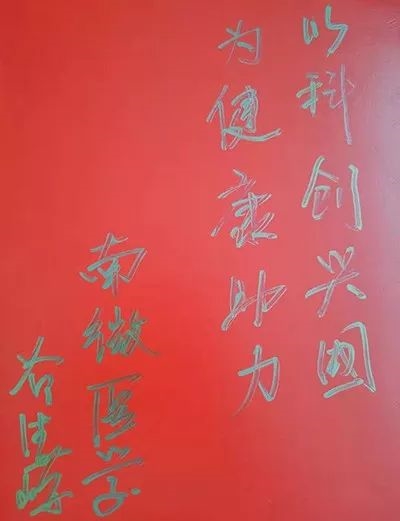 以科创兴国
为健康助力
南微医学
冷德嵘